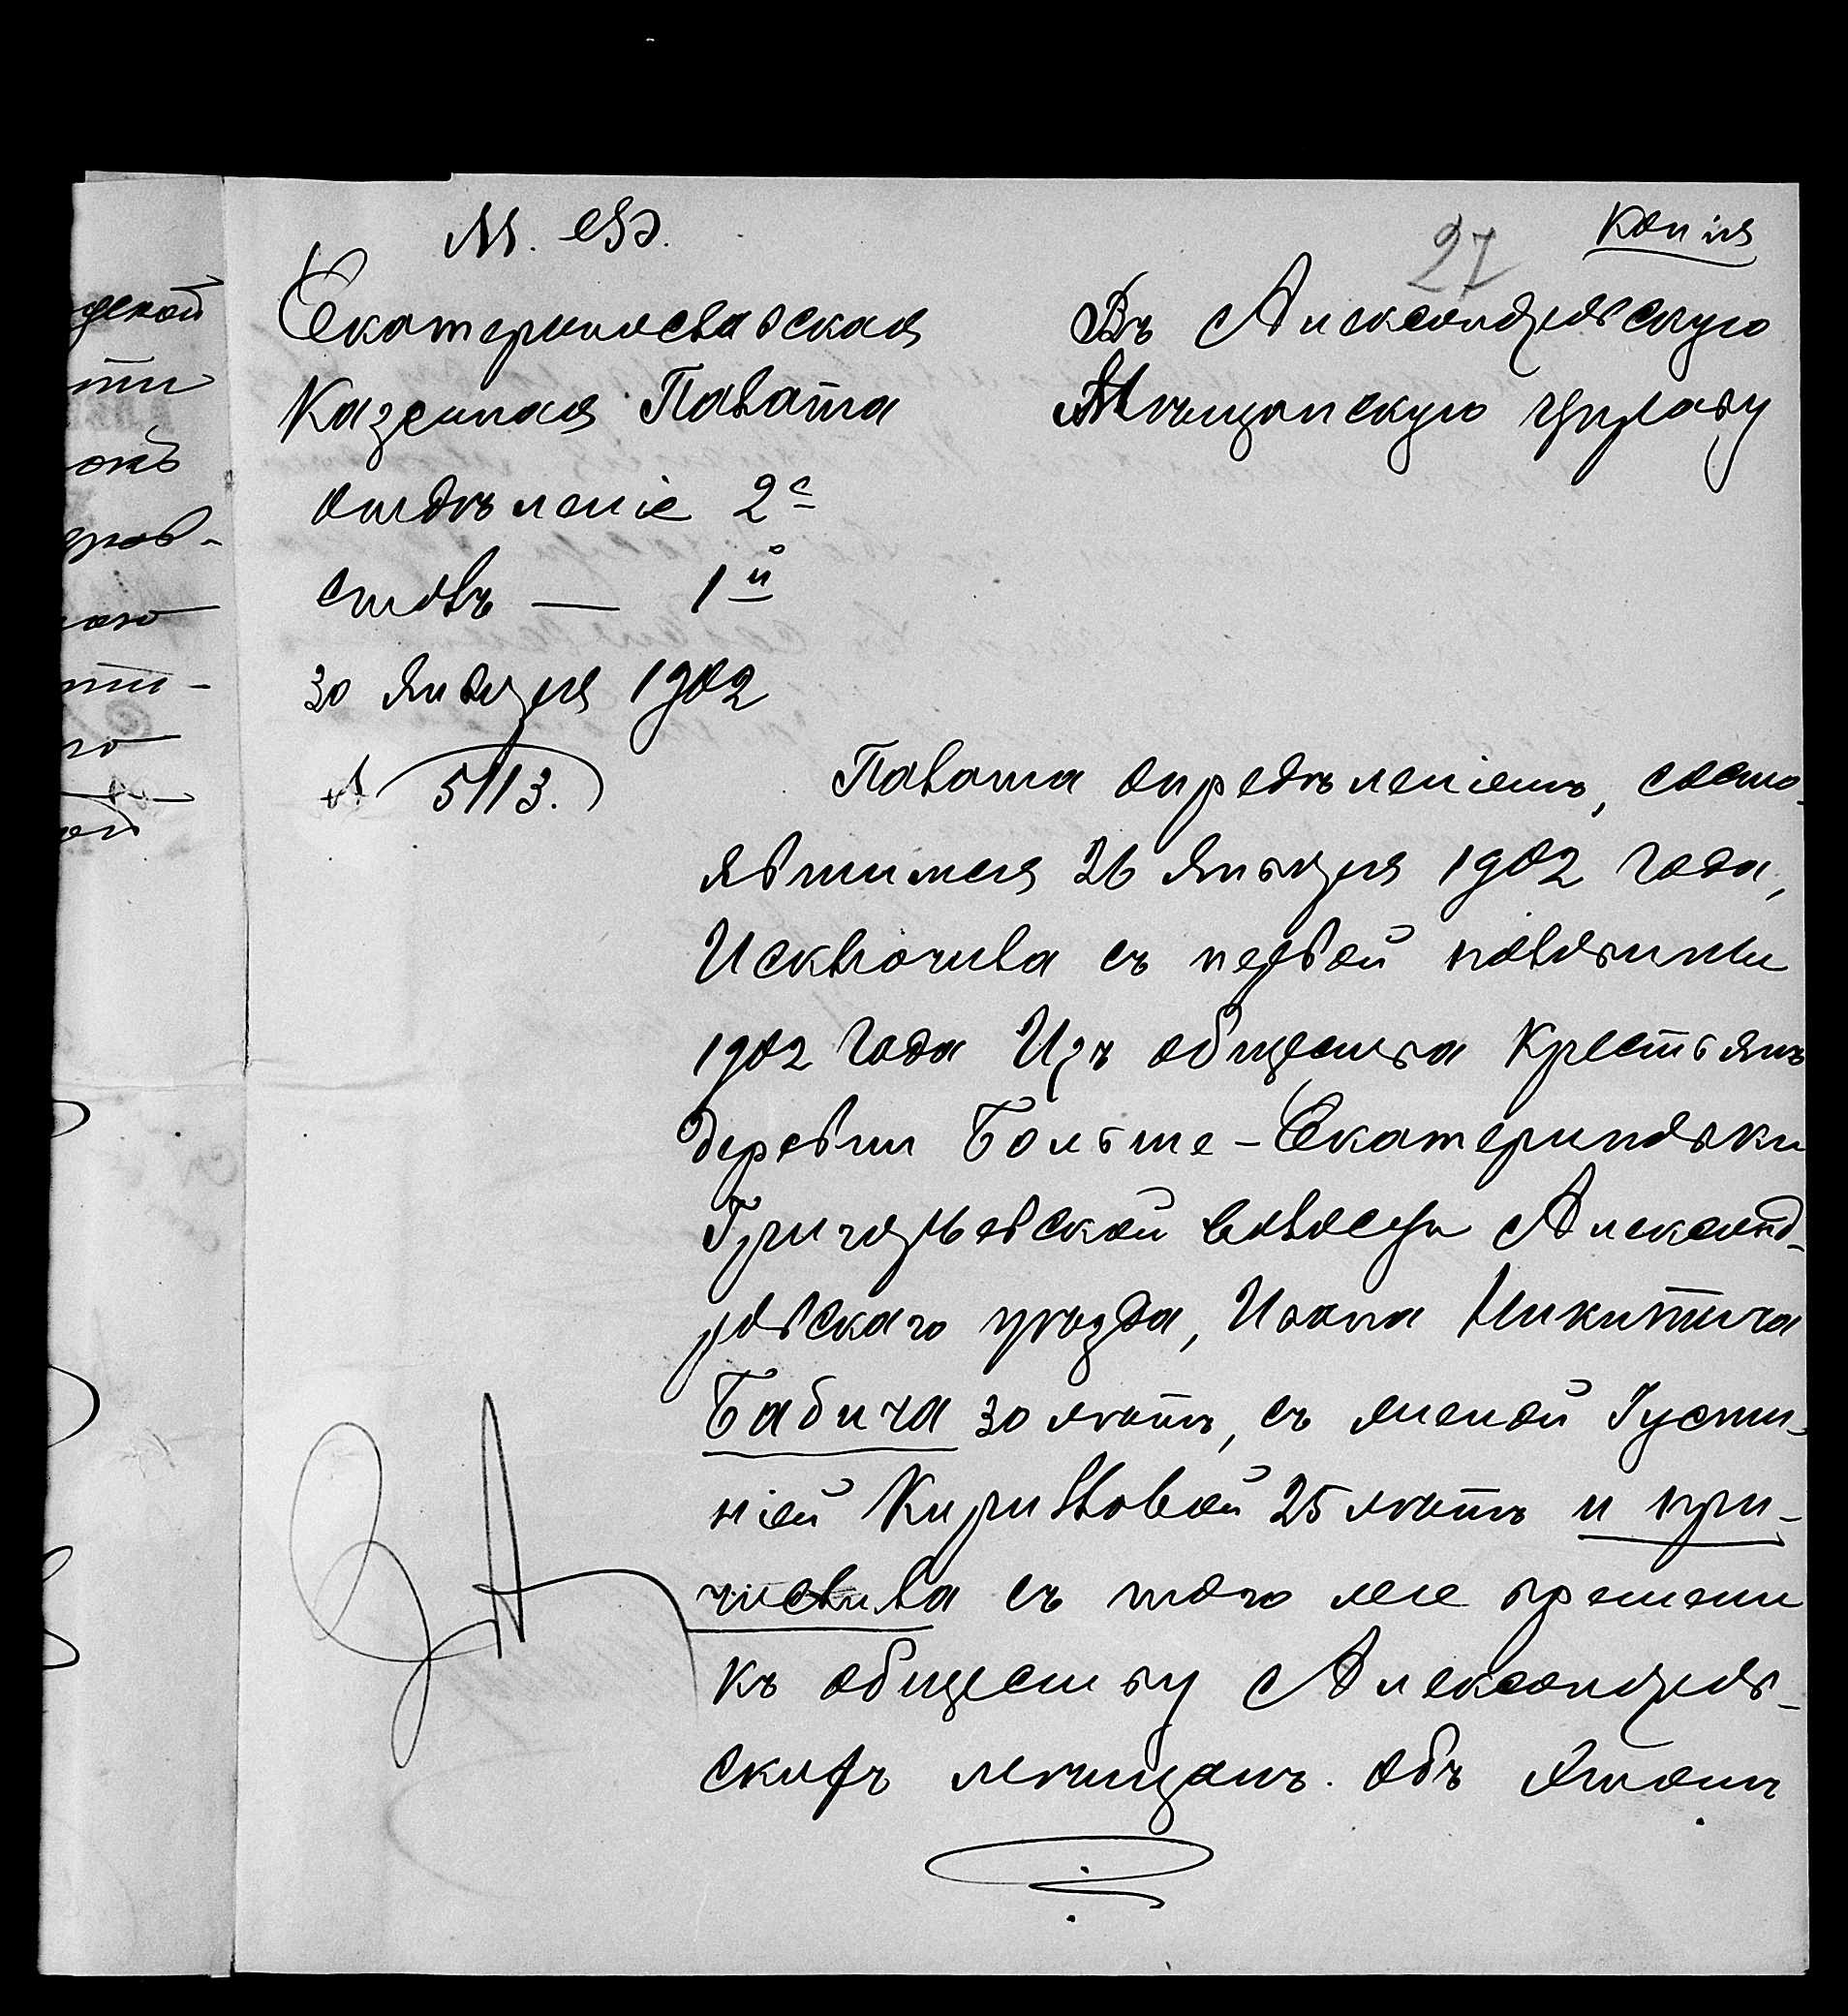 М. Ф.
27
Копія
Екатеринославская
Казенная Палата
отдѣленіе 2е
столъ — 1й
30 Января 1902
№ 5113.
Въ Александровскую
Мѣщанскую управу
Палата опредѣленіемъ, состо-
явшимся 26 Января 1902 года,
Исключила съ первой половины
1902 года Изъ общества Крестьянъ
деревни Больше-Екатериновки
Григорьевской волости Александ-
ровскаго уѣзда, Ивана Никитича
Бабича 30 лѣтъ, съ женой Густи-
ніей Кирилловой 25 лѣтъ и при-
числила съ того же времени
къ обществу Александров-
скихъ мѣщанъ. Объ этомъ